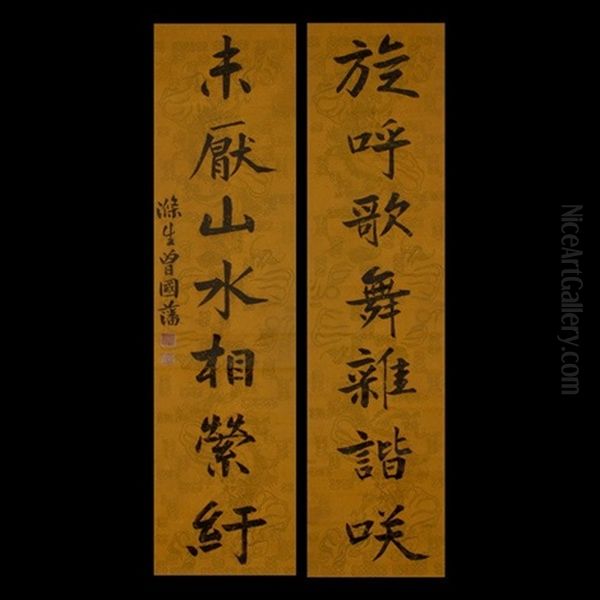 旋呼歌舞雜諧咲
未厭山水相縈紆
滌生曾國藩
NiceArtGallery.com